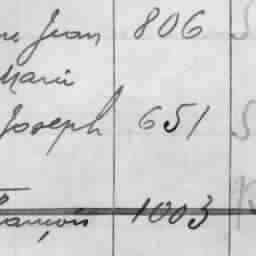 Jean 806
Marie
Joseph 651
François 1003